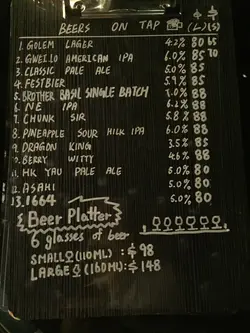 BEERS ON TAP $ $
(L) (S)
1. GOLEM LAGER 4.2% 80 65
2. GWEILO AMERICAN IPA 6.0% 85 70
3. CLASSIC PALE ALE 5.0% 85
4. FESTBIER 5.9% 85
5. BROTHER BASIL SINGLE BATCH 7.0% 88
6. NE IPA 6.2% 88
7. CHUNK SIR 5.8% 88
8. PINEAPPLE SOUR MILK IPA 6.0% 88
9. DRAGON KING 3.5% 85
10. BERRY WITTY 4.6% 88
11. HK YAU PALE ALE 5.0% 80
12. ASAHI 5.0% 80
13. 1664 5.0% 80
Beer Platter
6 glasses of beer
SMALL (110ML): $ 98
LARGE (160ML): $ 148